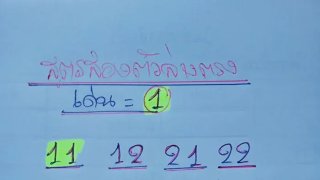 สูตรสองตัวล่างตรง
เด่น = 1
11 12 21 22